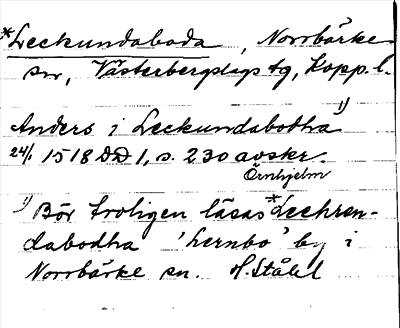 *Leckundaboda, Norrbärke
sn, Västerbergslags tg, Kopp. l.
Anders i Leckundabodha 1)
24/1 1518 DD 1, s. 230 avskr.
Örnhjelm
1) Bör troligen läsas *Lechren-
dabodha 'Lernbo' by i
Norrbärke sn. H. Ståhl